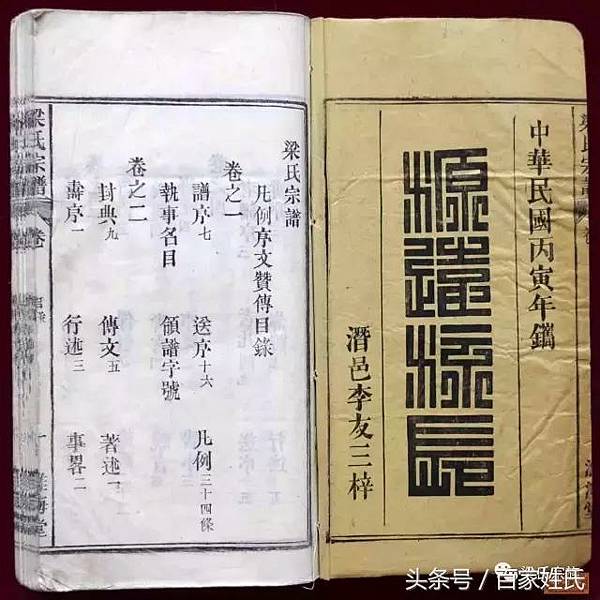 中華民國丙寅年鐫
源遠流長
潛邑李友三梓
梁氏宗譜
凡例序文贊傳目錄
卷之一
譜序七 送序十六 凡例三十四條
執事名目 領譜字號
卷之二
封典九 傳文五 著述一
壽序一 行述三 事畧二
梁氏宗譜 卷 一
梁氏宗譜
头条号 / 百家姓氏